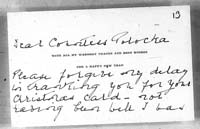 13
Dear Countess
WITH ALL MY WARMEST THANKS AND GOOD WISHES
FOR A HAPPY NEW YEAR
Please forgive my delay
in thanking you for your
Christmas Card - not
having been well I was